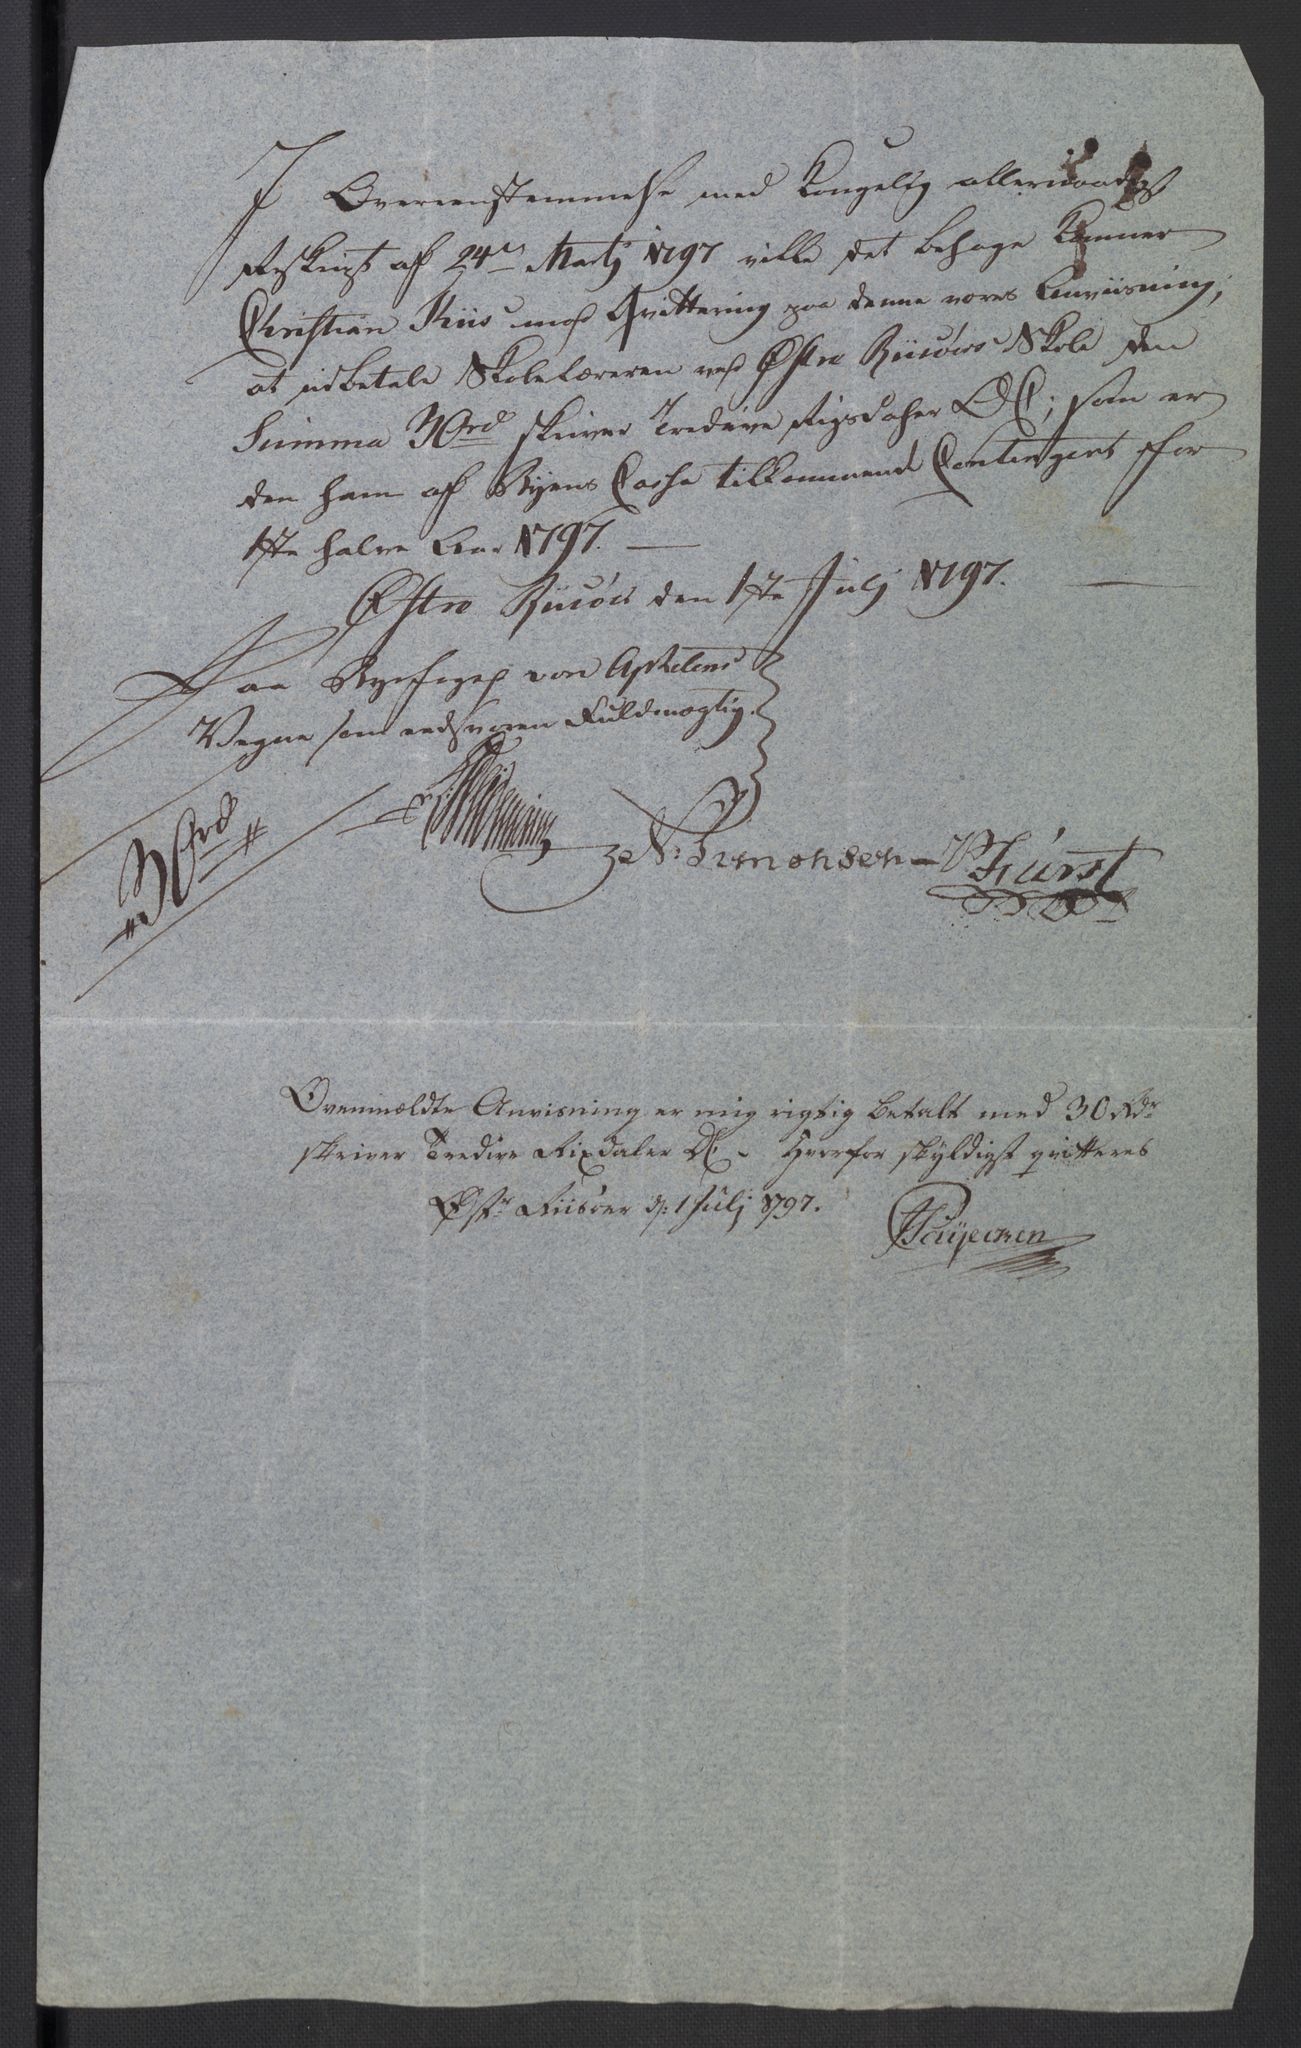 I Overeenstemmelse med Kongelig allernaadigst
Reskript af 24de Martj 1797 ville det behage Kemner
Christian Riis mod Qvittering paa denne vores Anviisning,
at udbetale Skolelæreren ved Østre Riisöers Skole den
Summa 30rd skriver Tredive Rigsdaler DC; som er
den ham af Byens Casse tilkommende Contingent for
1ste halve Aar 1797. —
Østre Riisöer den 1ste Julj 1797. —
Paa Byefoged von Aphelens
Vegne som eedsvoren Fuldmægtig.
N: Simonsen Fürst
30rd
Ovenmældte Anvisning er mig rigtig betalt med 30 Rdr
skriver Tredive Rixdaler DC - Hvorfor skyldigst qvitteres
Østr Riisöer d: 1 Julj 1797.